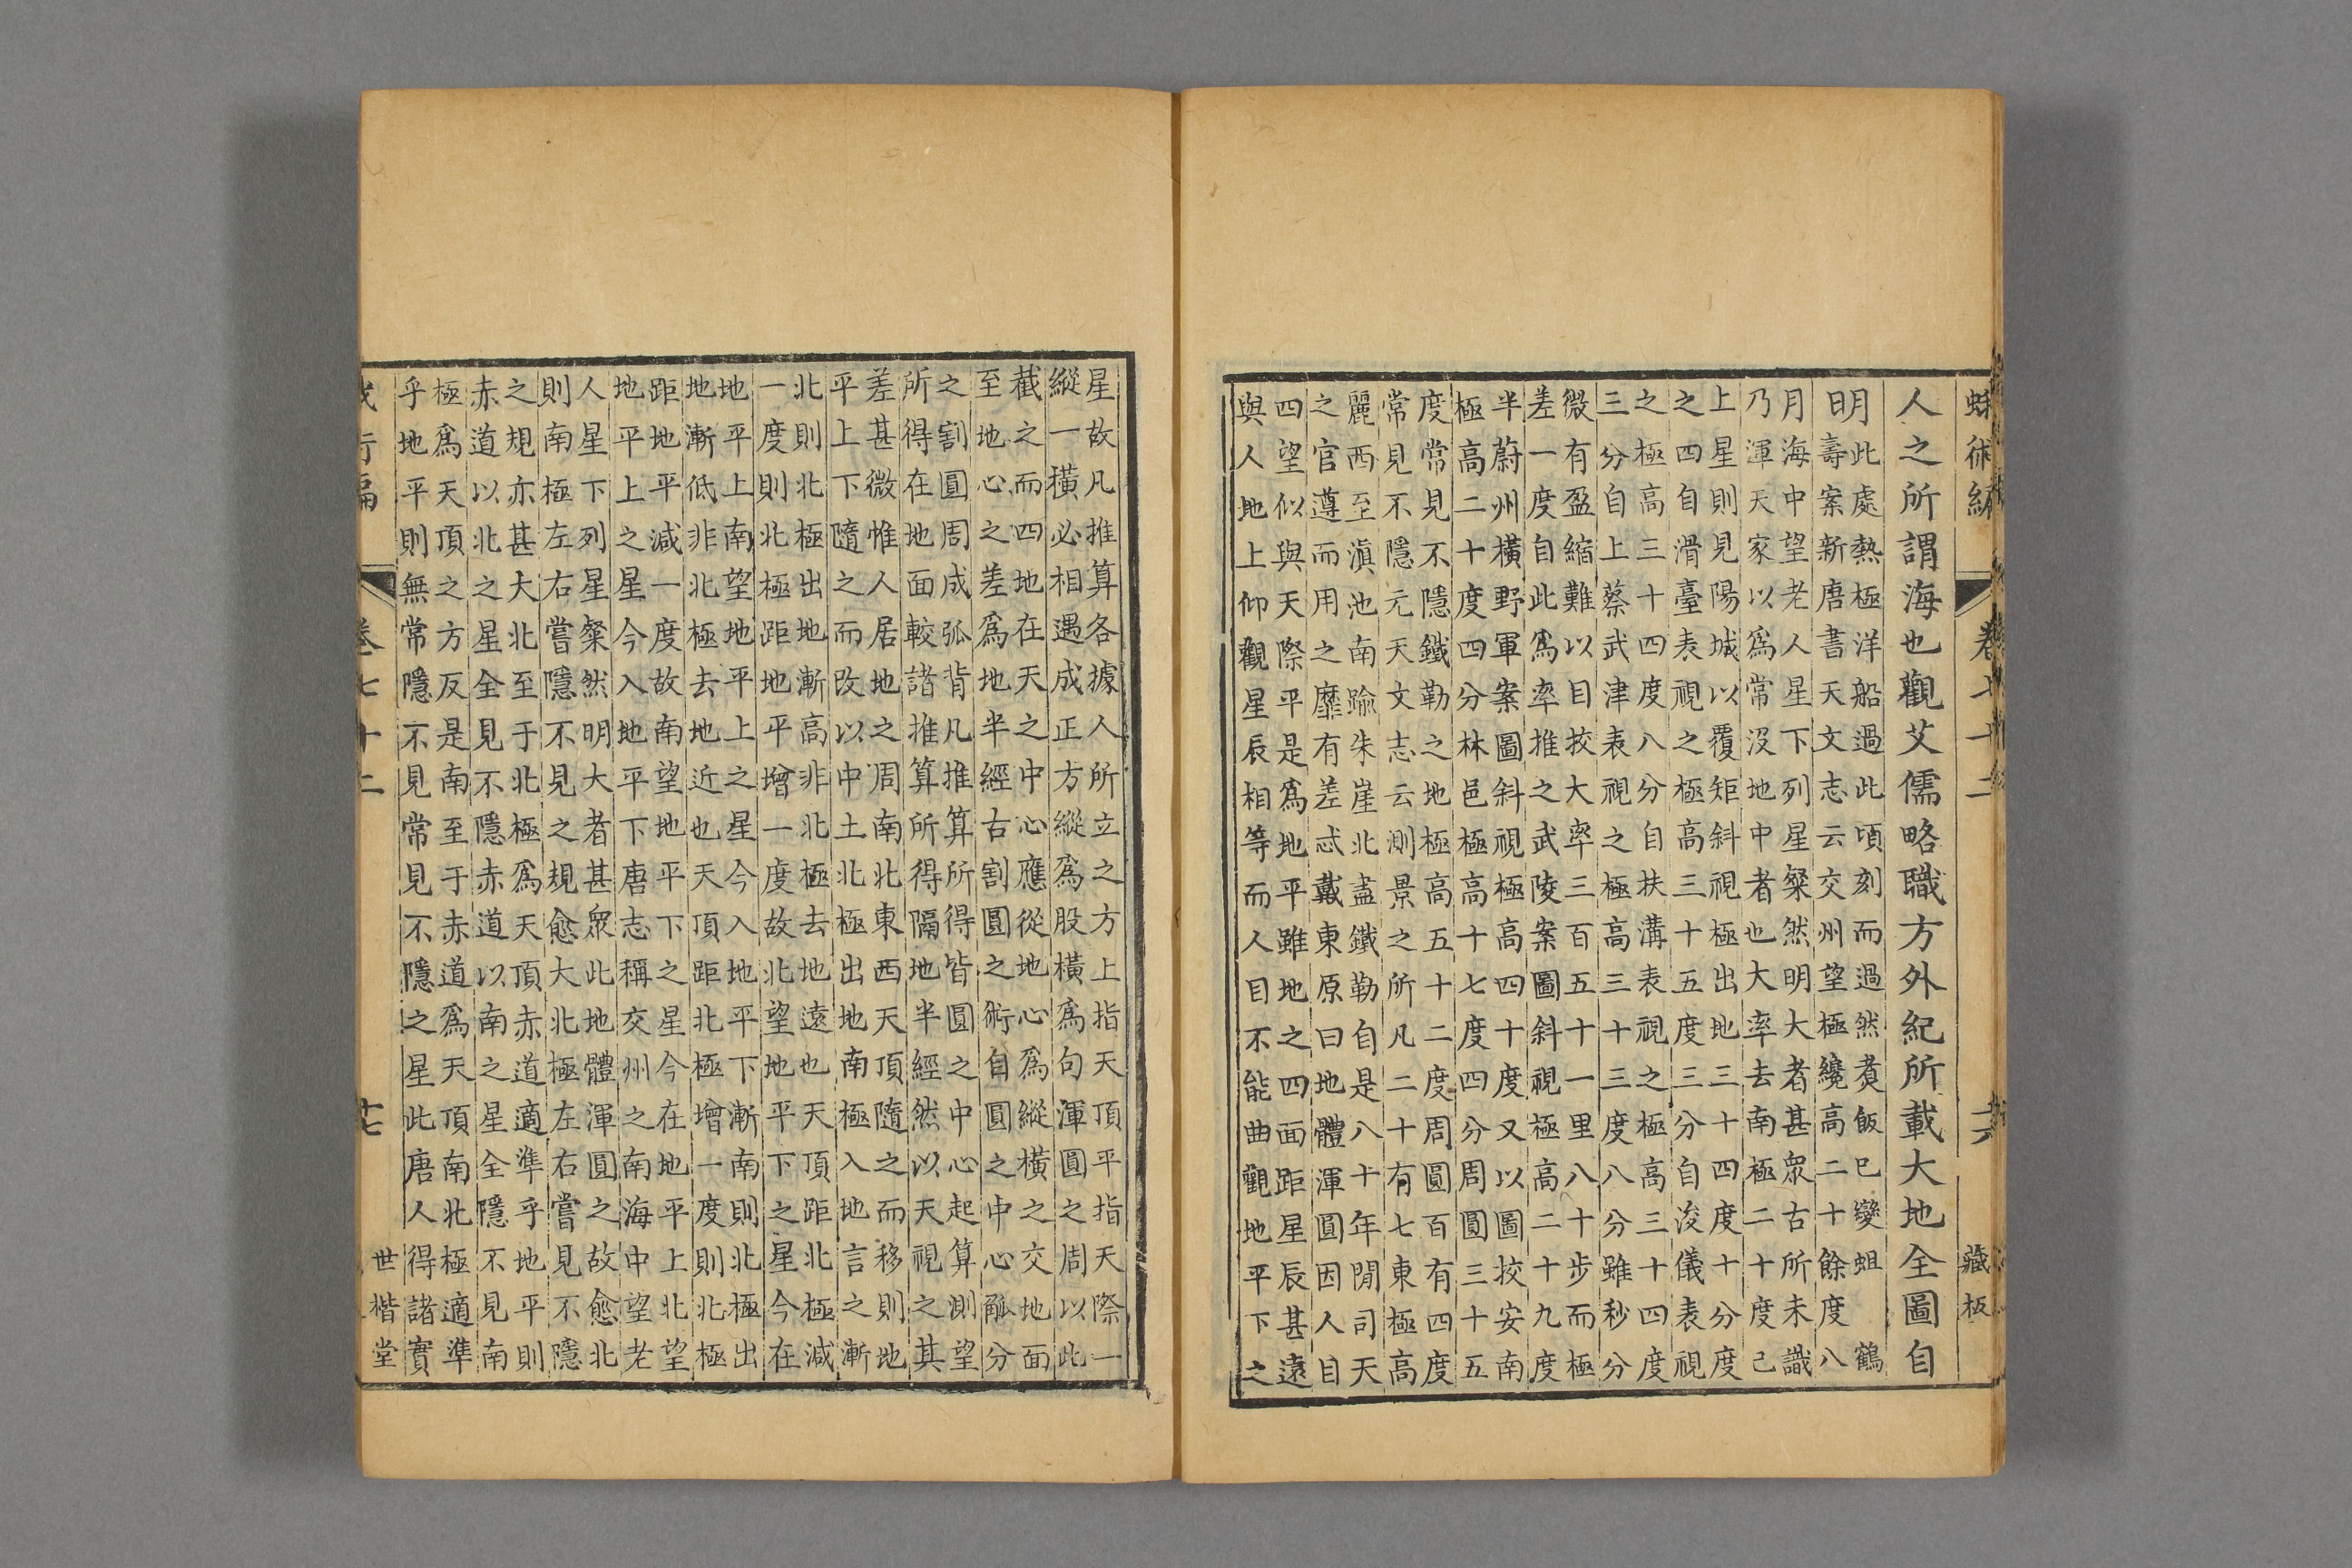 蛾術編 卷七十二 藏板
人之所謂海也觀艾儒略職方外紀所載大地全圖自
明此處熱極洋船過此頃刻而過然煑飯巳變蛆 鶴
壽案新唐書天文志云交州望極纔高二十餘度八
月海中望老人星下列星粲然明大者甚眾古所未識
乃渾天家以爲常沒地中者也大率去南極二十度己
上星則見陽城以覆矩斜視極出地三十四度十分度
之四自滑臺表視之極高三十五度三分自浚儀表視
之極高三十四度八分自扶溝表視之極高三十四度
三分自上蔡武津表視之極高三十三度八分雖秒分
微有盈縮難以目挍大率三百五十一里八十步而極
差一度自此爲率推之武陵案圖斜視極高二十九度
半蔚州橫野軍案圖斜視極高四十度又以圖挍安南
極高二十度四分林邑極高十七度四分周圓三十五
度常見不隱鐵勒之地極高五十二度周圓百有四度
常見不隱元天文志云測景之所凡二十有七東極高
麗西至滇池南踰朱崖北盡鐵勒自是八十年閒司天
之官遵而用之靡有差忒戴東原曰地體渾圓因人目
四望似與天際平是爲地平雖地之四面距星辰甚遠
與人地上仰觀星辰相等而人目不能曲觀地平下之
星故凡推算各據人所立之方上指天頂平指天際一
縱一橫必相遇成正方縱爲股橫爲句渾圓之周以此
截之而四地在天之中心應從地心爲縱橫之交地面
至地心之差爲地半經古割圓之術自圓之中心觚分
之割圓周成弧背凡推算所得皆圓之中心起算測望
所得在地面較諸推算所得隔地半經然以天視之其
差甚微惟人居地之周南北東西天頂隨之而移則地
平上下隨之而改以中土北極出地南極入地言之漸
北則北極出地漸高非北極去地遠也天頂距北極減
一度則北極距地平增一度故北望地平下之星今在
地平上南望地平上之星今入地平下漸南則北極出
地漸低非北極去地近也天頂距北極增一度則北極
距地平減一度故南望地平下之星今在地平上北望
地平上之星今入地平下唐志稱交州之南海中望老
人星下列星粲然明大者甚眾此地體渾圓之故愈北
則南極左右嘗隱不見之規愈大北極左右嘗見不隱
之規亦甚大北至于北極爲天頂赤道適準乎地平則
赤道以北之星全見不隱赤道以南之星全隱不見南
極爲天頂之方反是南至于赤道爲天頂南北極適準
乎地平則無常隱不見常見不隱之星此唐人得諸實
蛾術編 卷七十二 廿七 世楷堂